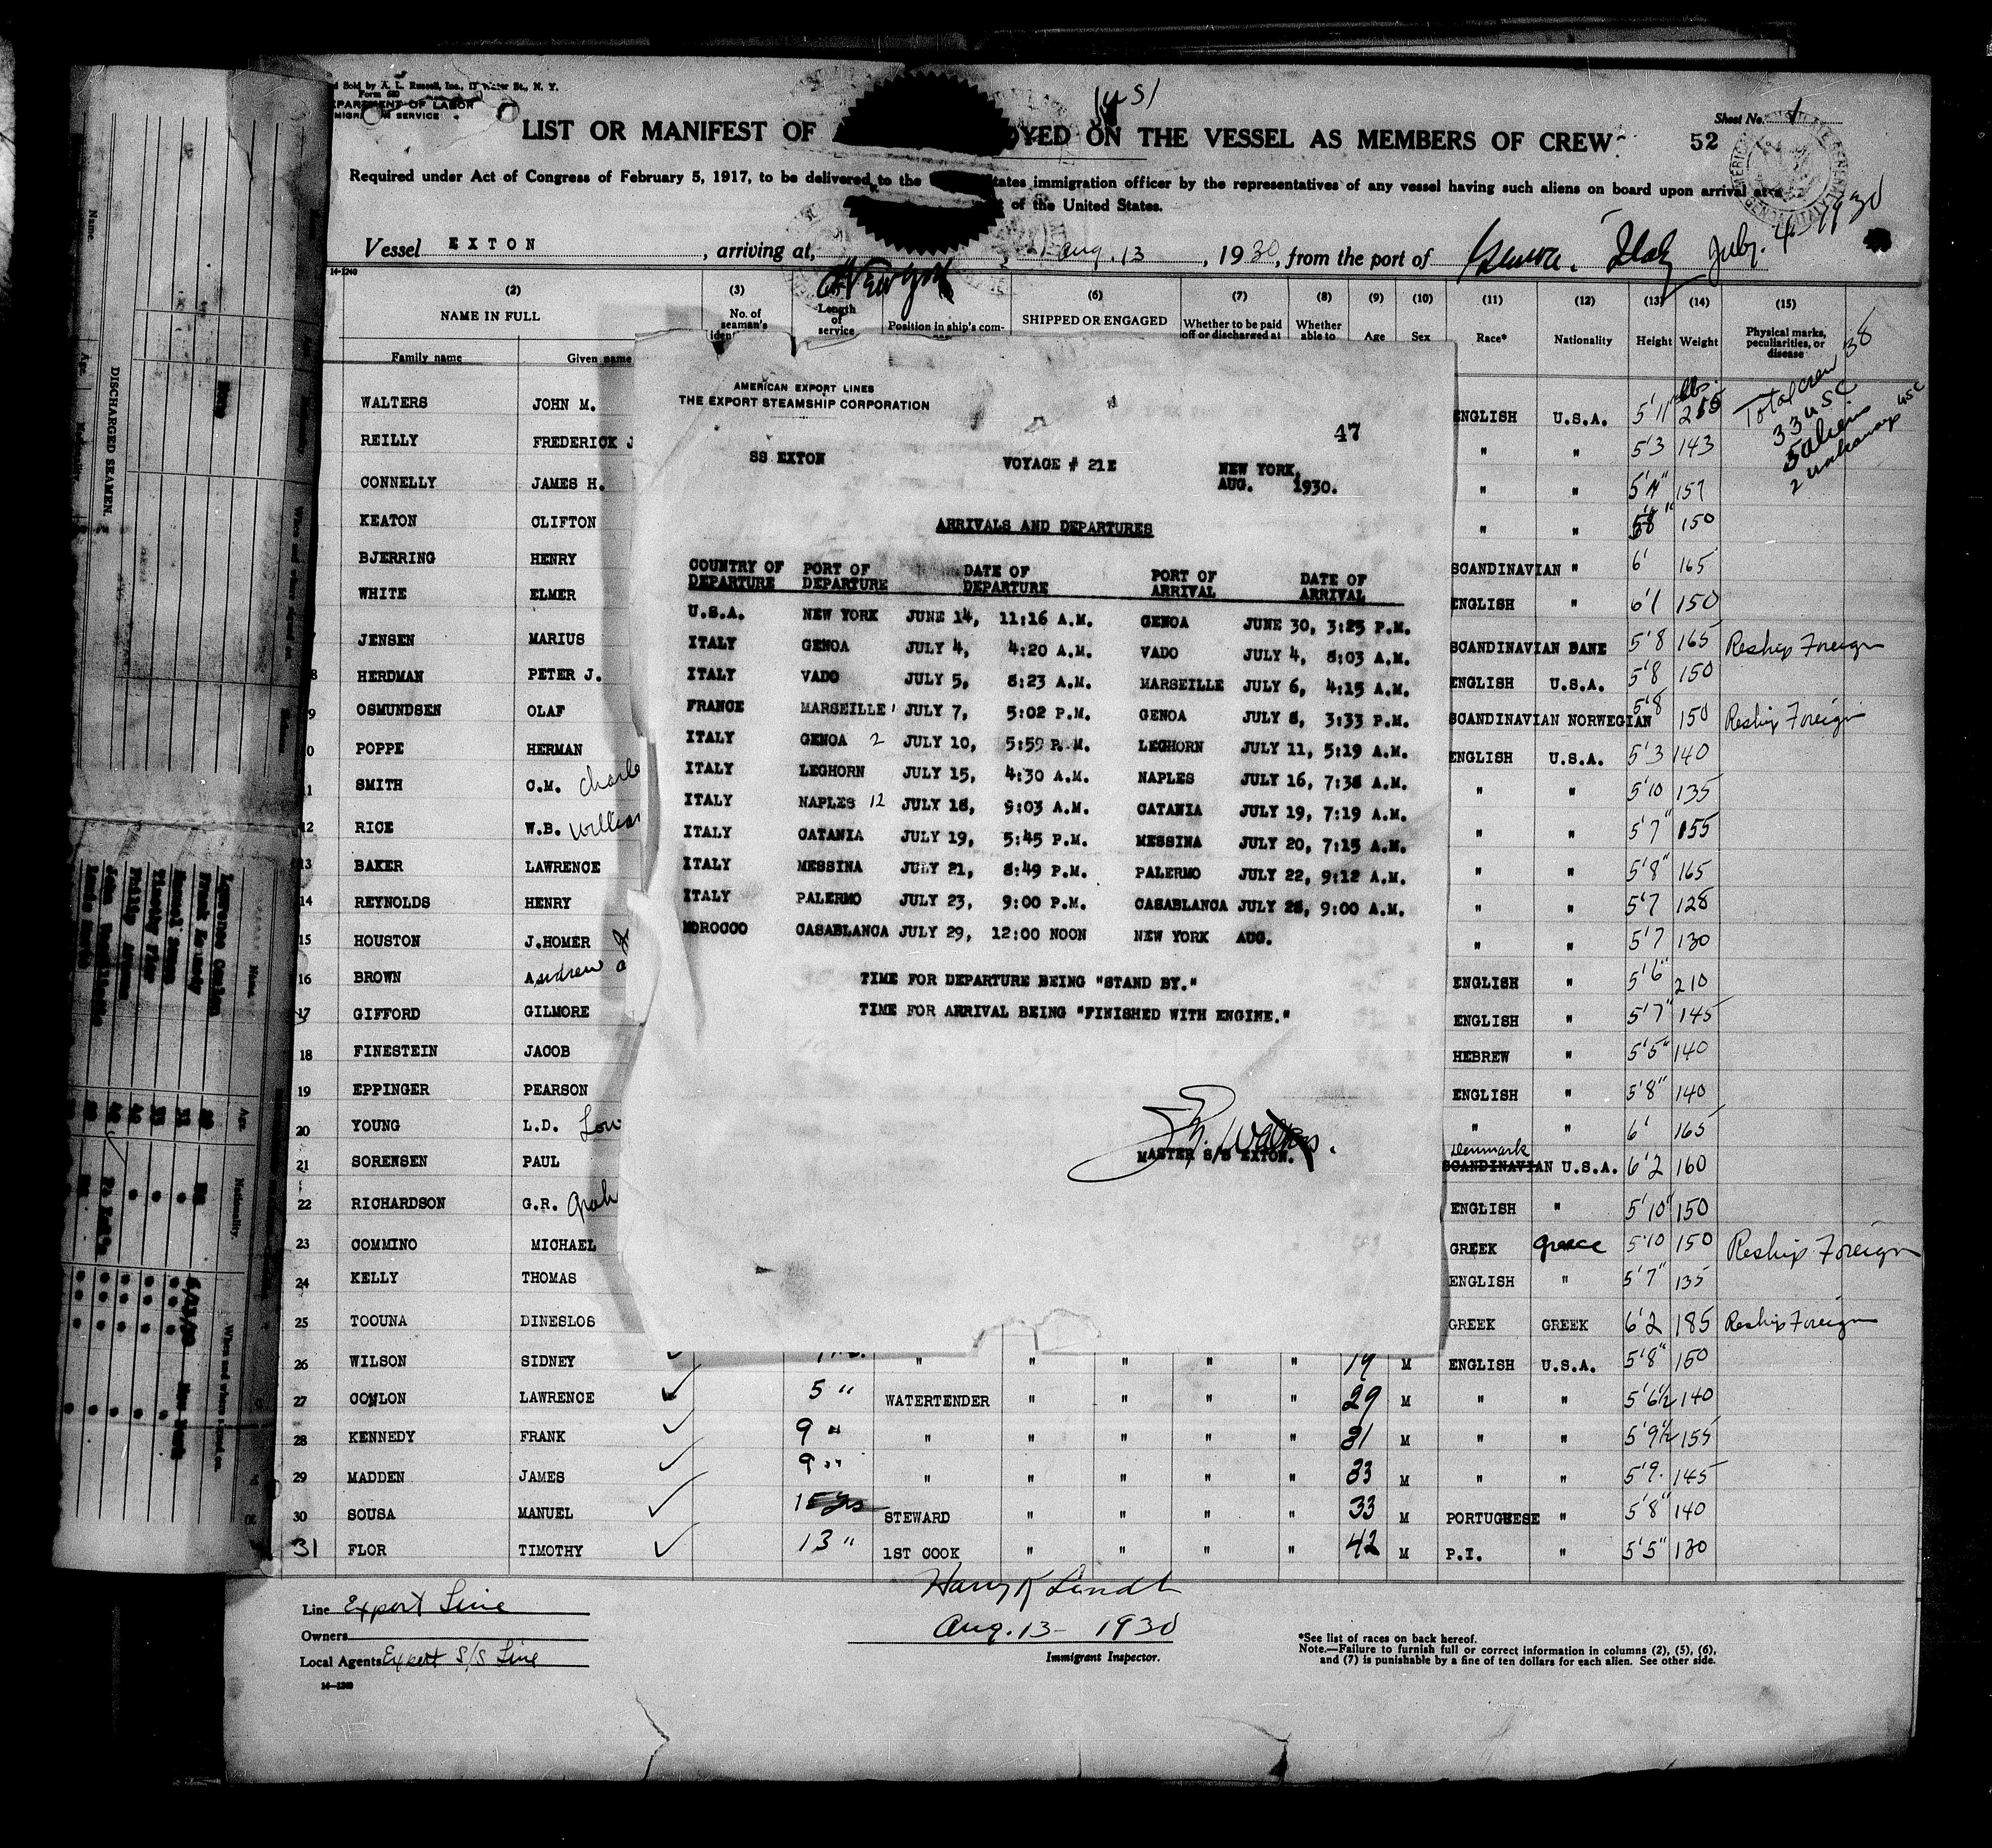 d Sold by A. L. Russell, Inc., 17 Water St., N. Y.
Form 680
DEPARTMENT OF LABOR
IMMIGRATION SERVICE
Sheet No. 1
LIST OR MANIFEST OF OYED ON THE VESSEL AS MEMBERS OF CREW 52
Required under Act of Congress of February 5, 1917, to be delivered to the tates immigration officer by the representatives of any vessel having such aliens on board upon arrival at a
of the United States.
Vessel EXTON , arriving at, New York Aug. 13 , 1930, from the port of Genoa, Italy July 4 1930
14-1240
(2) (3) (6) (7) (8) (9) (10) (11) (12) (13) (14) (15)
NAME IN FULL No. of seaman's Length of service Position in ship's com- SHIPPED OR ENGAGED Whether to be paid off or discharged at Whether able to Age Sex Race* Nationality Height Weight Physical marks, peculiarities, or disease
Family name Given name
Total crew 38
33 USC
5 aliens
2 workaways USC
AMERICAN EXPORT LINES
THE EXPORT STEAMSHIP CORPORATION
47
SS EXTON VOYAGE # 21E NEW YORK,
AUG. 1930.
ARRIVALS AND DEPARTURES
COUNTRY OF DEPARTURE PORT OF DEPARTURE DATE OF DEPARTURE PORT OF ARRIVAL DATE OF ARRIVAL
U.S.A. NEW YORK JUNE 14, 11:16 A.M. GENOA JUNE 30, 3:25 P.M.
ITALY GENOA JULY 4, 4:20 A.M. VADO JULY 4, 8:03 A.M.
ITALY VADO JULY 5, 8:23 A.M. MARSEILLE JULY 6, 4:15 A.M.
FRANCE MARSEILLE JULY 7, 5:02 P.M. GENOA JULY 8, 3:33 P.M.
ITALY GENOA 2 JULY 10, 5:59 P.M. LEGHORN JULY 11, 5:19 A.M.
ITALY LEGHORN JULY 15, 4:30 A.M. NAPLES JULY 16, 7:38 A.M.
ITALY NAPLES 12 JULY 18, 9:03 A.M. CATANIA JULY 19, 7:19 A.M.
ITALY CATANIA JULY 19, 5:45 P.M. MESSINA JULY 20, 7:15 A.M.
ITALY MESSINA JULY 21, 8:49 P.M. PALERMO JULY 22, 9:12 A.M.
ITALY PALERMO JULY 23, 9:00 P.M. CASABLANCA JULY 28, 9:00 A.M.
MOROCCO CASABLANCA JULY 29, 12:00 NOON NEW YORK AUG.
TIME FOR DEPARTURE BEING "STAND BY."
TIME FOR ARRIVAL BEING "FINISHED WITH ENGINE."
MASTER S/S EXTON.
WALTERS JOHN M. ENGLISH U.S.A. 5'11" lbs.
REILLY FREDERICK J " " 5'3 143
CONNELLY JAMES H. " " 5'4" 157
KEATON CLIFTON " " 5'8" 150
BJERRING HENRY SCANDINAVIAN " 6' 165
WHITE ELMER ENGLISH " 6'1 150
JENSEN MARIUS SCANDINAVIAN DANE 5'8 165 Reship Foreign
8 HERDMAN PETER J. ENGLISH U.S.A. 5'8 150
9 OSMUNDSEN OLAF SCANDINAVIAN NORWEGIAN 5'8 150 Reship Foreign
0 POPPE HERMAN ENGLISH U.S.A. 5'3 140
11 SMITH C.M. Charle " " 5'10 135
12 RICE W.B. William " " 5'7" 155
13 BAKER LAWRENCE " " 5'8" 165
14 REYNOLDS HENRY " " 5'7 128
15 HOUSTON J.HOMER " " 5'7 130
16 BROWN Andrew ENGLISH " 5'6" 210
17 GIFFORD GILMORE ENGLISH " 5'7" 145
18 FINESTEIN JACOB HEBREW " 5'5" 140
19 EPPINGER PEARSON ENGLISH " 5'8" 140
20 YOUNG L.D. Lou " " 6' 165
21 SORENSEN PAUL Denmark SCANDINAVIAN U.S.A. 6'2 160
22 RICHARDSON G.R. Grah ENGLISH " 5'10" 150
23 COMMINO MICHAEL GREEK Greece 5'10 150 Reship Foreign
24 KELLY THOMAS ENGLISH " 5'7" 135
25 TOOUNA DINESLOS GREEK GREEK 6'2 185 Reship Foreign
26 WILSON SIDNEY " " " " " 19 M ENGLISH U.S.A. 5'8" 150
27 CONLON LAWRENCE 5 " WATERTENDER " " " " 29 M " " 5'6½ 140
28 KENNEDY FRANK 9 " " " " " " 31 M " " 5'9½ 155
29 MADDEN JAMES 9 " " " " " " 33 M " " 5'9. 145
30 SOUSA MANUEL STEWARD " " " " 33 M PORTUGUESE " 5'8" 140
31 FLOR TIMOTHY 13 " 1ST COOK " " " " 42 M P.I. " 5'5" 130
Line Export Line
Owners
Local Agents Export S/S Line
14-1240
Harry K Lindt
Aug. 13 - 1930
Immigrant Inspector.
*See list of races on back hereof.
Note.—Failure to furnish full or correct information in columns (2), (5), (6),
and (7) is punishable by a fine of ten dollars for each alien. See other side.
DISCHARGED SEAMEN.
Name
Age.
Nationality.
When and where signed on.
Lawrence Conlon
Frank Kennedy
Manuel Sousa
Timothy Flor